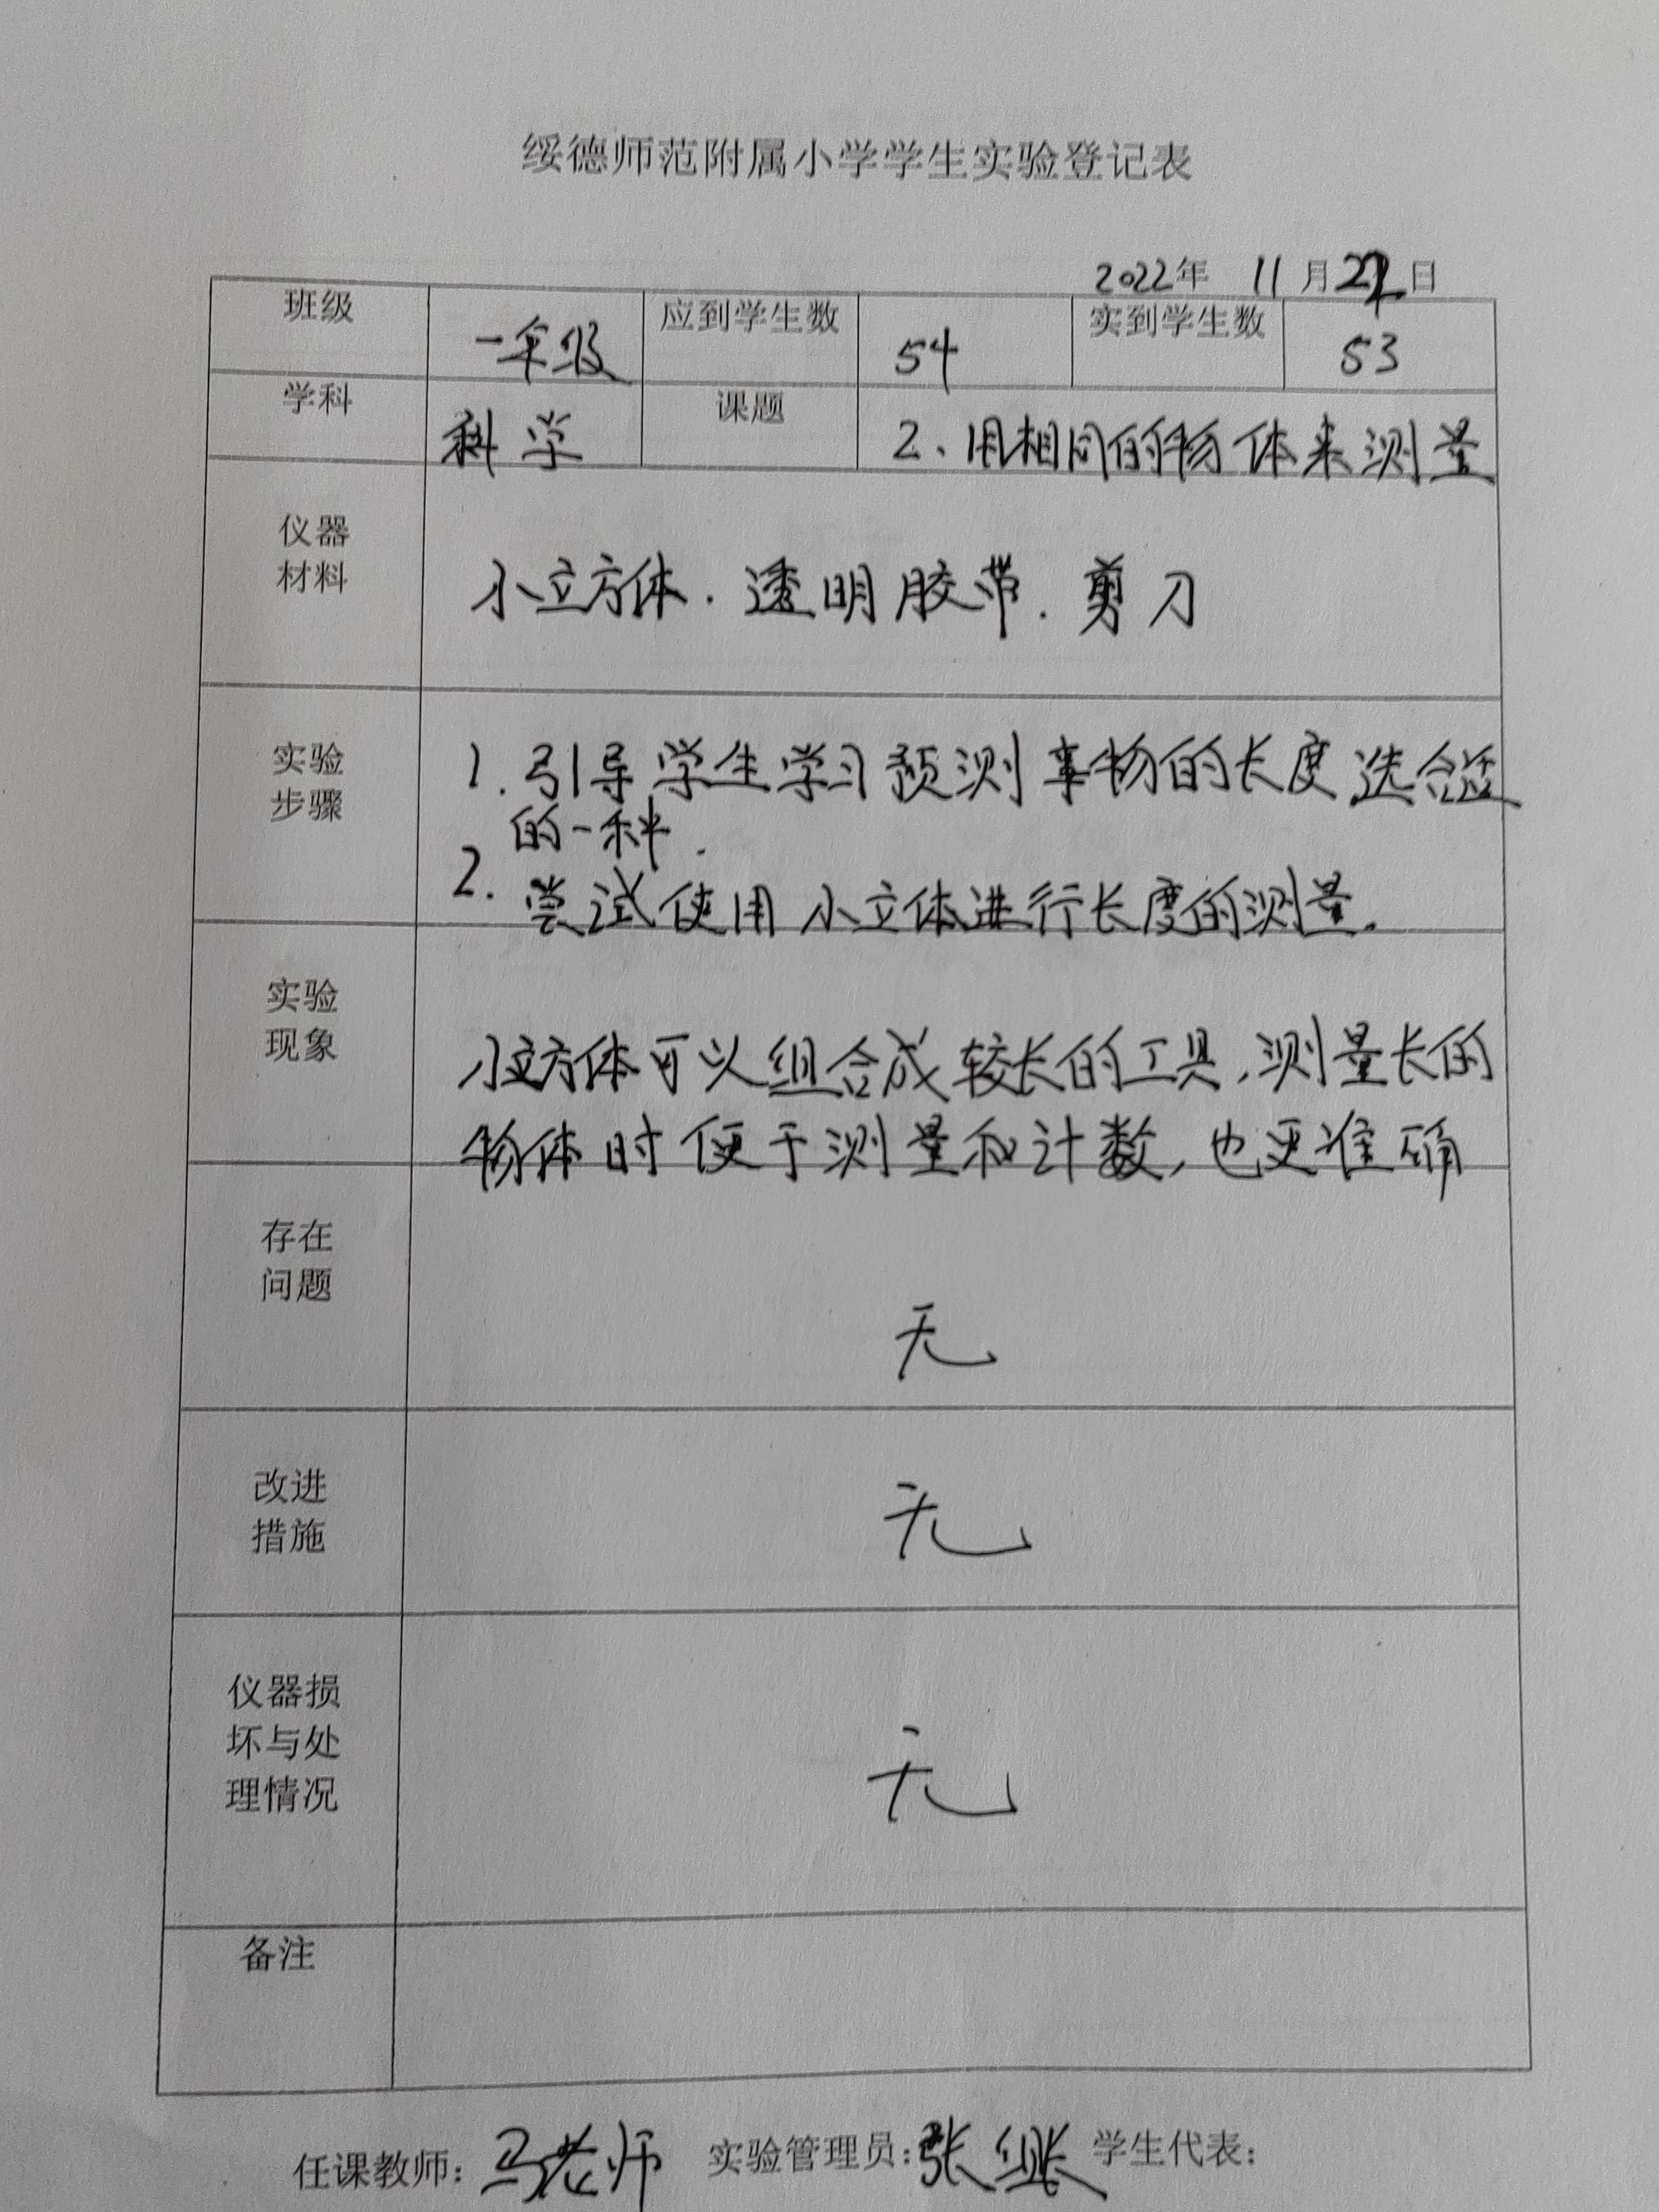 绥德师范附属小学学生实验登记表
2022年 11月 日
班级 一年级 应到学生数 54 实到学生数 53
学科 科学 课题 2、用相同的物体来测量
仪器
材料
小立方体．透明胶带．剪刀
实验
步骤
1．引导学生学习预测事物的长度选合适
的一种．
2．尝试使用小立体进行长度的测量．
实验
现象
小立方体可以组合成较长的工具，测量长的
物体时便于测量和计数，也更准确
存在
问题
无
改进
措施
无
仪器损
坏与处
理情况
无
备注
任课教师：马老师 实验管理员：张 学生代表：